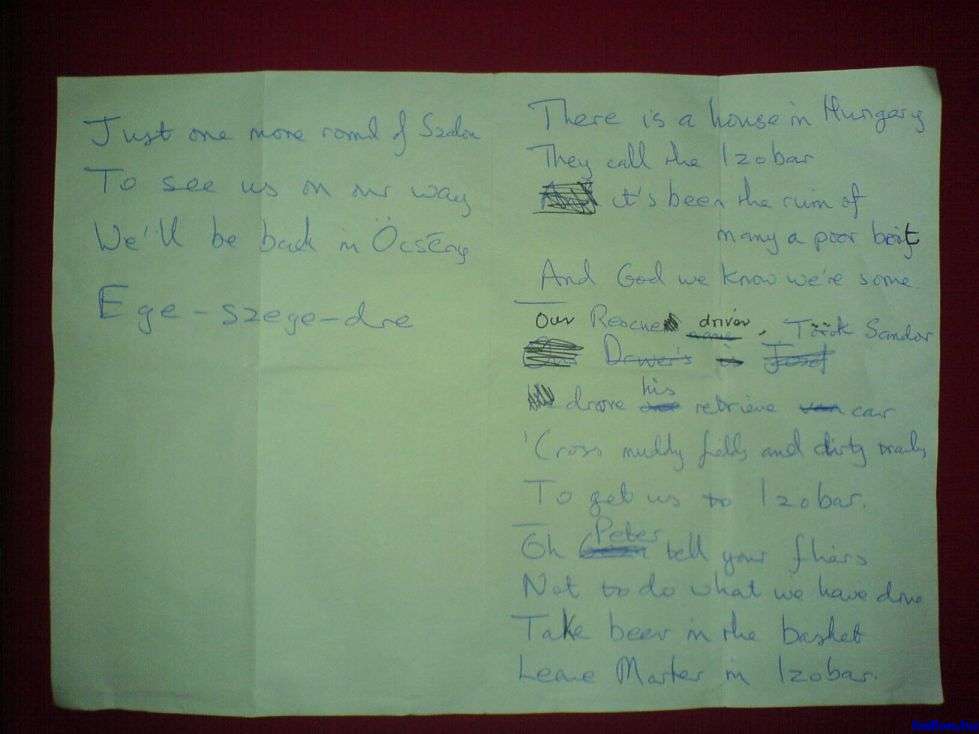 Just one more round of Szalon
To see us on our way
We'll be back in Öcsény
Ege-szege-dre
There is a house in Hungary
They call the Izobar
it's been the ruin of
many a poor
And God we know we're some
Our Rescue driver, Török Sandor
drove his retrieve car
'Cross muddy fields and dirty tracks
To get us to Izobar.
Oh Peter tell your fliers
Not to do what we have done
Take beer in the basket
Leave in Izobar.